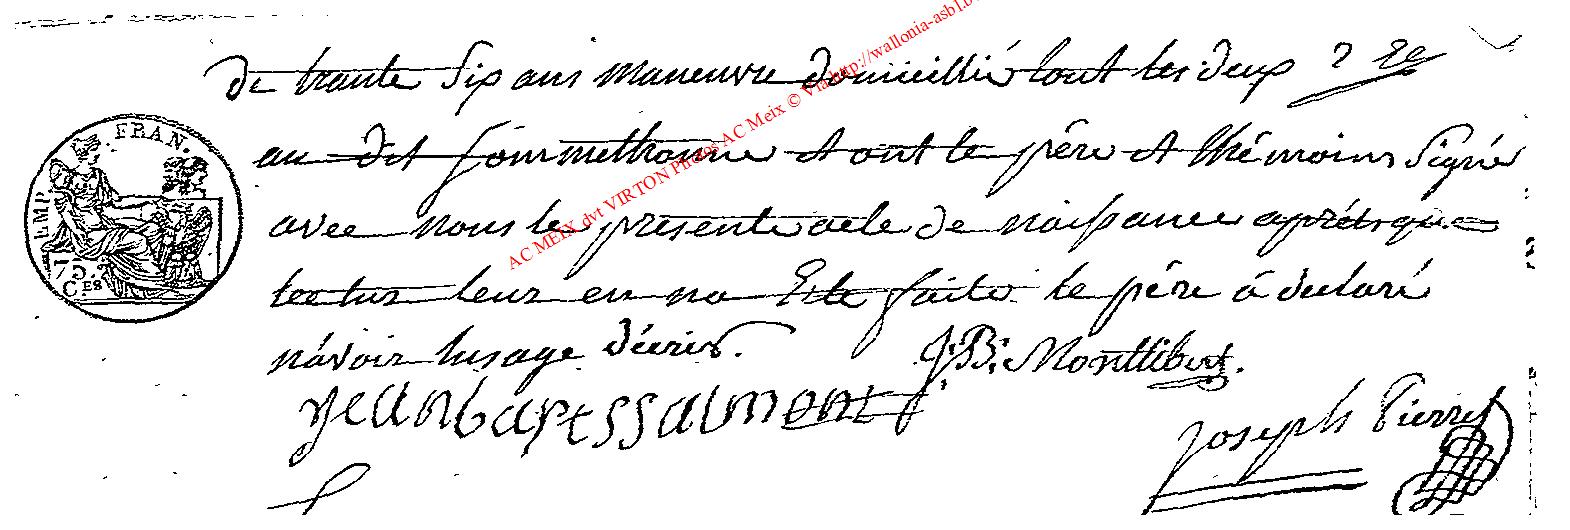 de trante Six ans maneuvre domicillié tout les deux
au dit Sommethonne et ont le père et thémoins Signé
avec nous le presente acte de naissance aprés que
lectur leur en na Este faite le père à declaré
n'avoir lusage d'écrir.
J: B: Montlibert.
Jean bapt ssalmont
Joseph Pierret
EMP. FRAN.
75. C.ES
AC MEIX dvt VIRTON Photos AC Meix © Via http://wallonia-asbl.b